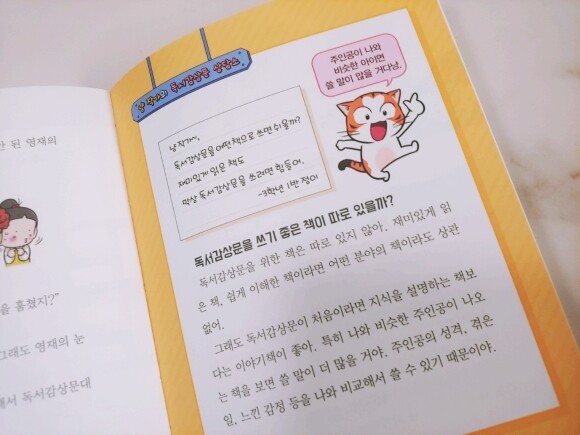 한 된 영재의
을 훔쳤지?"
그래도 영재의 눈
해서 독서감상문대
냥 작가의 독서감상문 상담소
주인공이 나와
비슷한 아이면
쓸 말이 많을 거다냥.
냥 작가~,
독서감상문을 어떤 책으로 쓰면 쉬울까?
재미있게 읽은 책도
막상 독서감상문을 쓰려면 힘들어.
-3학년 1반 정이
독서감상문을 쓰기 좋은 책이 따로 있을까?
독서감상문을 위한 책은 따로 있지 않아. 재미있게 읽
은 책, 쉽게 이해한 책이라면 어떤 분야의 책이라도 상관
없어.
그래도 독서감상문이 처음이라면 지식을 설명하는 책보
다는 이야기책이 좋아. 특히 나와 비슷한 주인공이 나오
는 책을 보면 쓸 말이 더 많을 거야. 주인공의 성격, 겪은
일, 느낀 감정 등을 나와 비교해서 쓸 수 있기 때문이야.